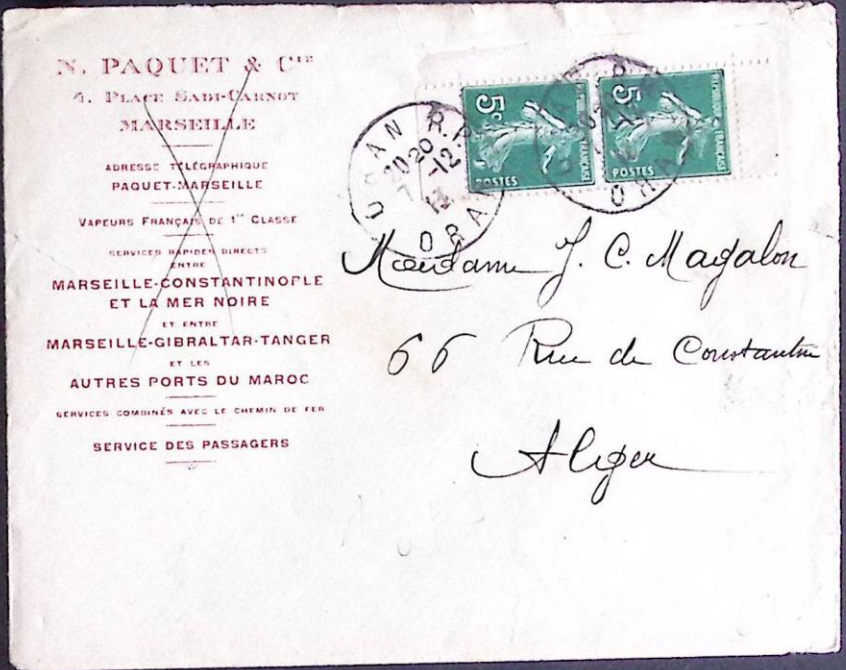 N. PAQUET & CIE
4, PLACE SADI-CARNOT
MARSEILLE
ADRESSE TÉLÉGRAPHIQUE
PAQUET-MARSEILLE
VAPEURS FRANÇAIS DE 1re CLASSE
SERVICES RAPIDES DIRECTS
ENTRE
MARSEILLE-CONSTANTINOPLE
ET LA MER NOIRE
ET ENTRE
MARSEILLE-GIBRALTAR-TANGER
ET LES
AUTRES PORTS DU MAROC
SERVICES COMBINÉS AVEC LE CHEMIN DE FER
SERVICE DES PASSAGERS
ORAN R.P.
20 20
7 -12
13
ORAN
5c
POSTES
FRANÇAISE
5
POSTES
REPUBLIQUE FRANÇAISE
ORAN
Madame J. C. Magalon
66 Rue de Constantine
Alger